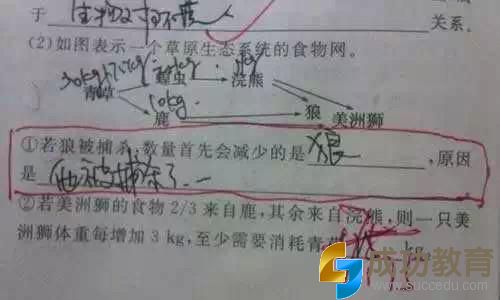 于 生物对环境 关系.
(2)如图表示一个草原生态系统的食物网。
浣熊
10kg
鹿 狼 美洲狮
①若狼被捕杀,数量首先会减少的是 狼 ,原因
是 他被捕杀了
②若美洲狮的食物 2/3 来自鹿,其余来自浣熊,则一只美
洲狮体重每增加 3 kg,至少需要消耗青 kg
成功教育
www.succedu.com